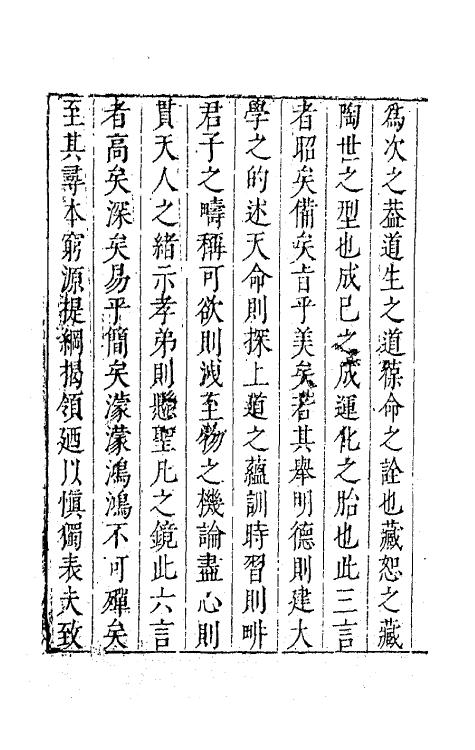 爲次之葢道生之道葆命之詮也藏恕之藏
陶世之型也成已之成運化之胎也此三言
者昭矣備矣旨乎美矣若其舉明德則建大
學之的述天命則探上道之蘊訓時習則畊
君子之疇稱可欲則洩至物之機論盡心則
貫天人之緒示孝弟則懸聖凡之鏡此六言
者高矣深矣易乎簡矣濛濛鴻鴻不可殫矣
至其尋本窮源提綱揭領廼以愼獨表夫致